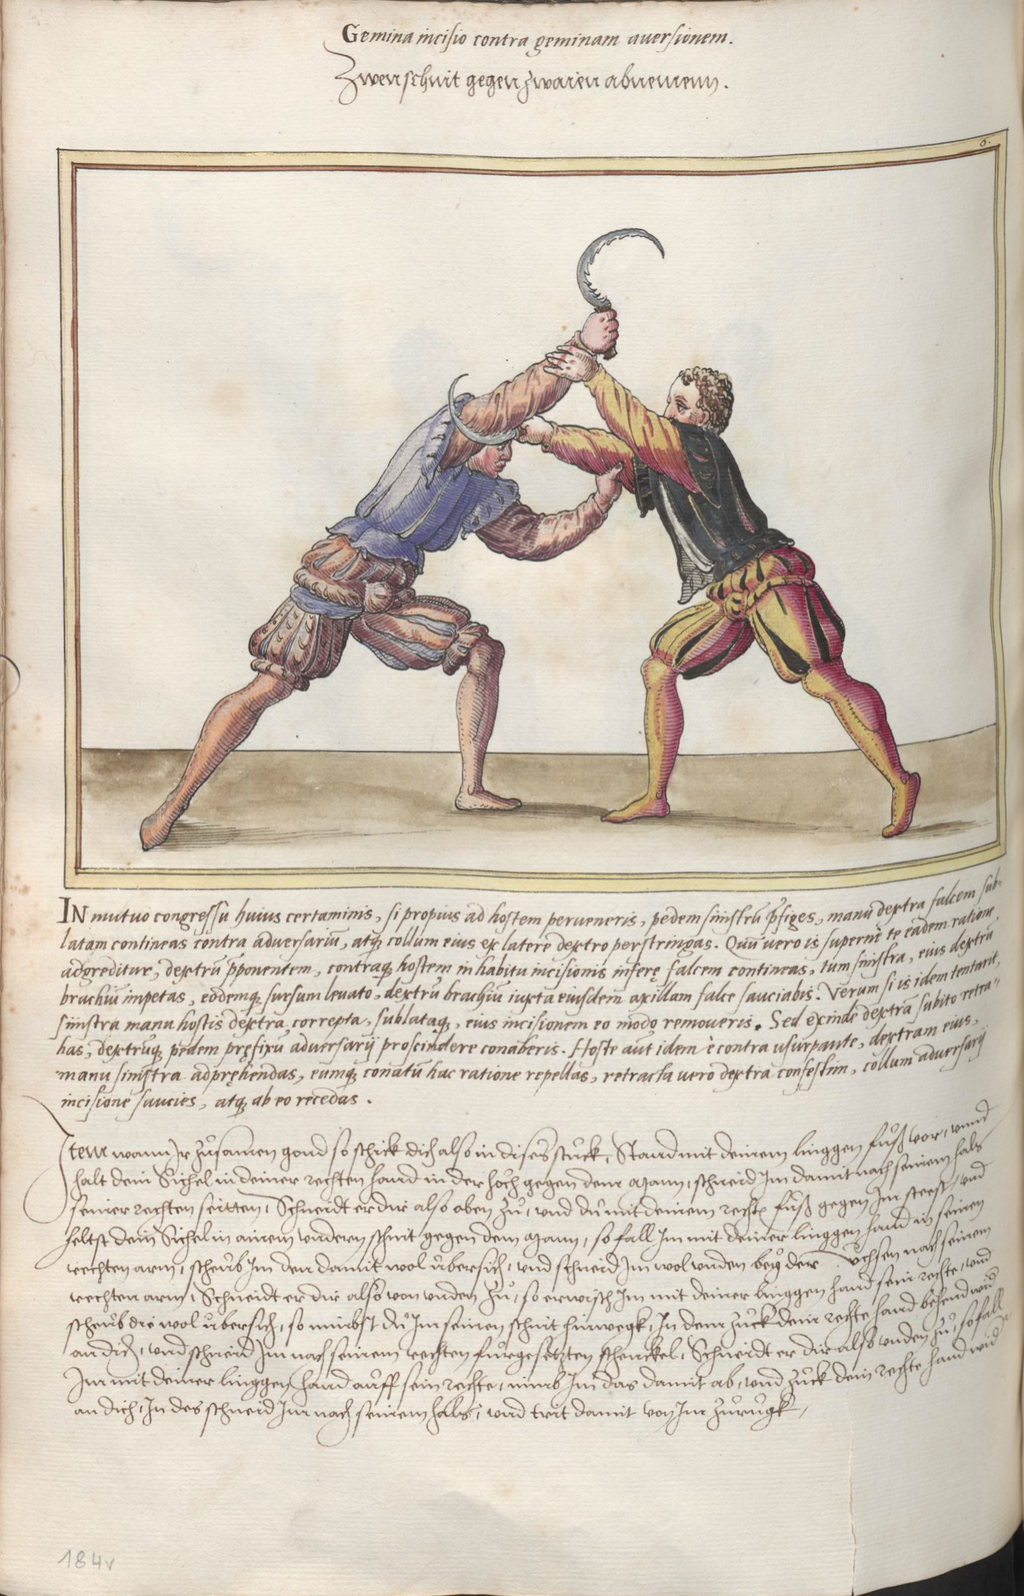 Gemina incisio contra geminam auersionem.
Zwen schnit gegen zwaien abnemenn.
6.
IN mutuo congressu huius certaminis, si propius ad hostem perueneris, pedem sinistrũ p̃figes, manu dextra falcem sub-
latam contineas contra aduersariũ, atq̃ collum eius ex latere dextro perstringas. Quũ uero is supernè te eadem ratione,
adgreditur, dextrũ p̃ponentem, contraq̃ hostem in habitu incisionis inferę falcem contineas, tum sinistra, eius dextrũ
brachiũ impetas, eodemq̃ sursum leuato, dextrũ brachiũ iuxta eiusdem axillam falce sauciabis. Verum si is idem tentarit,
sinistra manu hostis dextra correpta, sublataq̃, eius incisionem eo modo remoueris. Sed exinde dextra subito retra-
has, dextruq̃ pedem pręfixũ aduersarij proscindere conaberis. Hoste aũt idem è contra usurpante, dextram eius,
manu sinistra adpręhendas, eumq̃ conatũ hac ratione repellas, retracta uero dextra confestim, collum aduersarij
incisione saucies, atq̃ ab eo recedas.
Item wann Ir zůsamen gond so schick dich also in dises stuckh, Stand mit deinem linggen fůß vor, vnnd
halt dein Sichel in deiner rechten hand in der höch gegen dem Mann, schneid Im damit nach seinem hals
seiner rechten seitten, Schneidt er dir also oben zů, vnd du mit deinem recht fůß gegen Im steest, vnd
heltst dein Sichel in ainem vnderen schnit gegen dem Mann, so fall Im mit deiner linggen hand in seinen
rechten arm, scheub Im den damit wol übersich, vnd schneid Im wol vnden bey der Vchsen nach seinem
rechten arm, Schneidt er dir also von vnden zů, so erwisch Im mit deiner linggen hand sein rechte, vnd
scheub die wol übersich, so nimbst du Im seinen schnit hinwegk, In dem zuck dein rechte hand behend wid
an dich, vnd schneid Im nach seinem rechten fürgesetzten schenckel, Schneidt er dir also vnden zů, so fall
Im mit deiner linggen hand auff sein rechte, nimb Im das damit ab, vnd zuck dein rechte hand wid
an dich, In des schneid Im nach seinem hals, vnd trit damit von Im zurugk,
184v